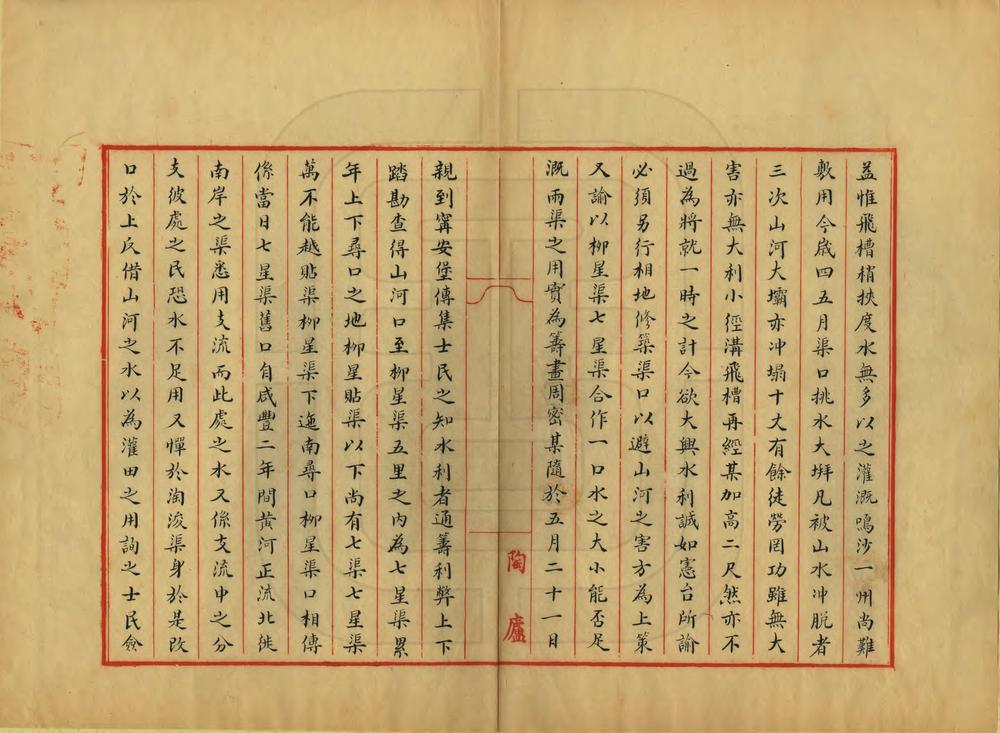 益惟飛槽稍挾度水無多以之灌溉鳴沙一州尚難
敷用今歲四五月渠口挑水大塀凡被山水冲脫者
三次山河大壩亦冲塌十丈有餘徒勞罔功雖無大
害亦無大利小徑溝飛槽再經某加高二尺然亦不
過為將就一時之計今欲大興水利誠如憲台所諭
必須另行相地修築渠口以避山河之害方為上策
又諭以柳星渠七星渠合作一口水之大小能否足
溉兩渠之用實為籌畫周密某隨於五月二十一日
陶廬
親到寗安堡傳集士民之知水利者通籌利弊上下
踏勘查得山河口至柳星渠五里之內為七星渠累
年上下尋口之地柳星貼渠以下尚有七渠七星渠
萬不能越貼渠柳星渠下迤南尋口柳星渠口相傳
係當日七星渠舊口自咸豐二年間黃河正流北徙
南岸之渠悉用支流而此處之水又係支流中之分
支彼處之民恐水不足用又憚於淘浚渠身於是改
口於上反借山河之水以為灌田之用詢之士民僉